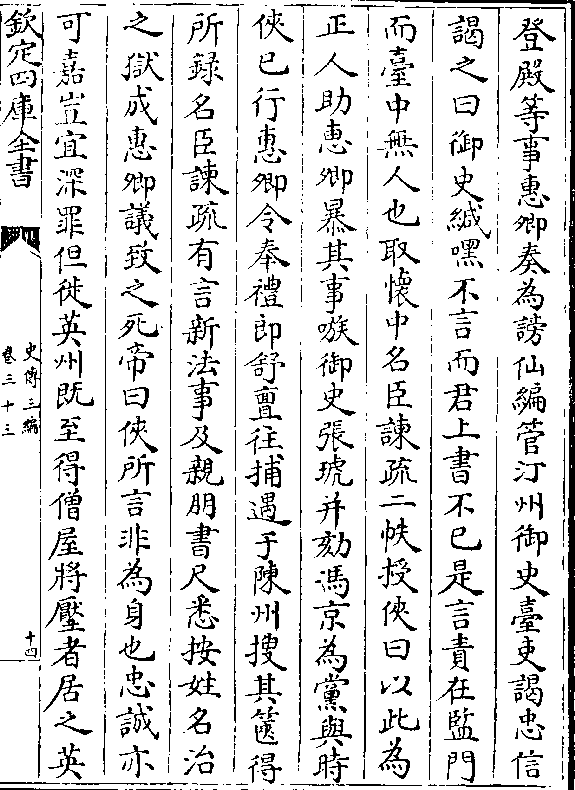 登殿等事惠卿奏為謗仙編管汀州御史臺吏謁忠信
謁之曰御史緘嘿不言而君上書不已是言責在監門
而臺中無人也取懷中名臣諫疏二帙授俠曰以此為
正人助惠卿暴其事嗾御史張琥并劾馮京為黨與時
俠已行惠卿令奉禮郎舒亶往捕遇于陳州搜其篋得
所錄名臣諫疏有言新法事及親朋書尺悉按姓名治
之獄成惠卿議致之死帝曰俠所言非為身也忠誠亦
可嘉豈宜深罪但徙英州既至得僧屋將壓者居之英
欽定四庫全書
史傳三編
卷三十三
十四